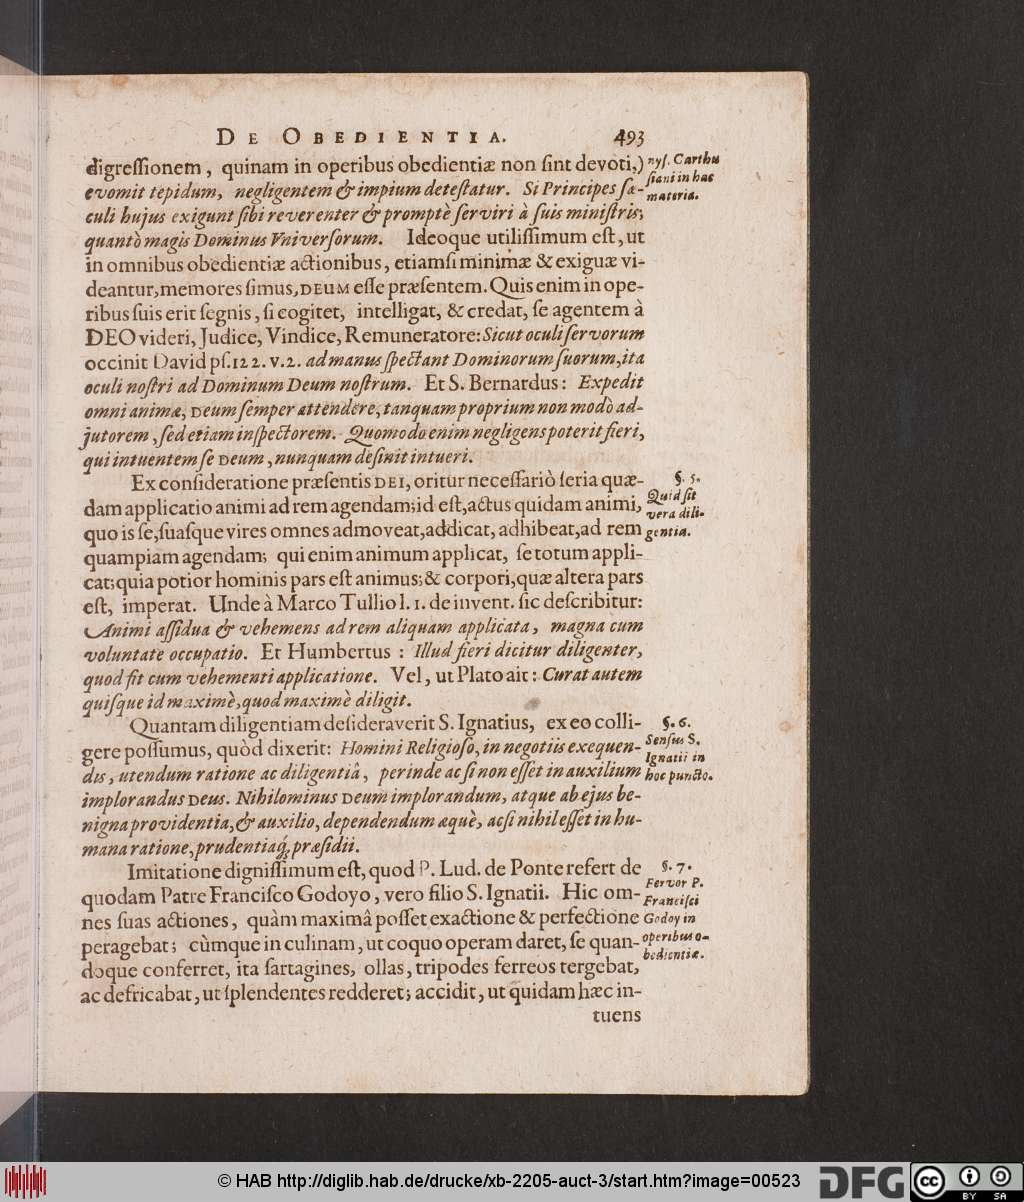 DE OBEDIENTIA. 493
digreſſionem, quinam in operibus obedientiæ non ſint devoti,)
evomit tepidum, negligentem & impium deteſtatur. Si Principes ſæ-
culi hujus exigunt ſibi reverenter & promptè ſerviri à ſuis miniſtris;
quantò magis Dominus Vniverſorum. Ideoque utiliſſimum eſt, ut
in omnibus obedientiæ actionibus, etiamſi minimæ & exiguæ vi-
deantur, memores ſimus, DEUM eſſe præſentem. Quis enim in ope-
ribus ſuis erit ſegnis, ſi cogitet, intelligat, & credat, ſe agentem à
DEO videri, Judice, Vindice, Remuneratore: Sicut oculi ſervorum
occinit David pſ. 122. v. 2. ad manus ſpectant Dominorum ſuorum, ita
oculi noſtri ad Dominum Deum noſtrum. Et S. Bernardus: Expedit
omni animæ, DEUM ſemper attendere, tanquam proprium non modò ad-
jutorem, ſed etiam inſpectorem. Quomodo enim negligens poterit fieri,
qui intuentem ſe DEUM, nunquam deſinit intueri.
Ex conſideratione præſentis DEI, oritur neceſſariò ſeria quæ-
dam applicatio animi ad rem agendam; id eſt, actus quidam animi,
quo is ſe, ſuaſque vires omnes admoveat, addicat, adhibeat, ad rem
quampiam agendam; qui enim animum applicat, ſe totum appli-
cat; quia potior hominis pars eſt animus; & corpori, quæ altera pars
eſt, imperat. Unde à Marco Tullio l. 1. de invent. ſic deſcribitur:
Animi aſſidua & vehemens ad rem aliquam applicata, magna cum
voluntate occupatio. Et Humbertus: Illud fieri dicitur diligenter,
quod fit cum vehementi applicatione. Vel, ut Plato ait: Curat autem
quiſque id maximè, quod maximè diligit.
Quantam diligentiam deſideraverit S. Ignatius, ex eo colli-
gere poſſumus, quòd dixerit: Homini Religioſo, in negotiis exequen-
dis, utendum ratione ac diligentiâ, perinde ac ſi non eſſet in auxilium
implorandus DEUS. Nihilominus DEUM implorandum, atque ab ejus be-
nigna providentia, & auxilio, dependendum æquè, ac ſi nihil eſſet in hu-
mana ratione, prudentiaq́; præſidii.
Imitatione digniſſimum eſt, quod P. Lud. de Ponte refert de
quodam Patre Franciſco Godoyo, vero filio S. Ignatii. Hic om-
nes ſuas actiones, quàm maximâ poſſet exactione & perfectione
peragebat; cùmque in culinam, ut coquo operam daret, ſe quan-
doque conferret, ita ſartagines, ollas, tripodes ferreos tergebat,
ac defricabat, ut ſplendentes redderet; accidit, ut quidam hæc in-
tuens
nyſ. Carthu
ſiani in hac
materia.
§. 5.
Quid ſit
vera dili-
gentia.
§. 6.
Senſus S.
Ignatii in
hoc puncto.
§. 7.
Fervor P.
Franciſci
Godoy in
operibus o-
bedientiæ.
© HAB http://diglib.hab.de/drucke/xb-2205-auct-3/start.htm?image=00523
DFG
cc BY SA